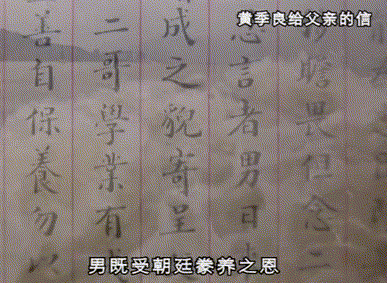 黄季良给父亲的信
瞻畏但念二
言者男日
成之貌寄呈
二哥學業有
善自保養勿以
男既受朝廷豢养之恩